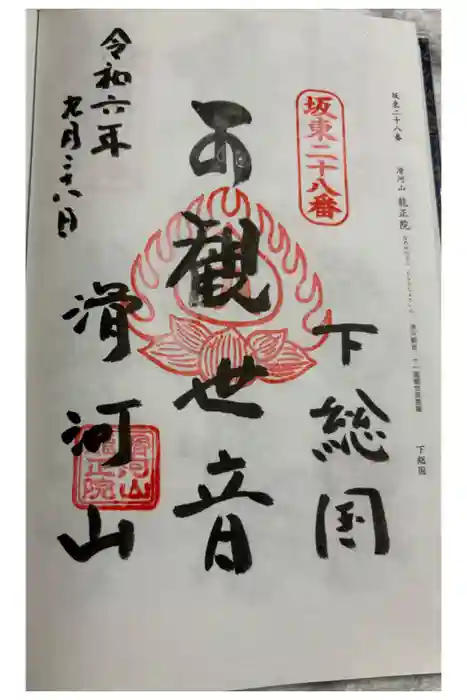 坂東二十八番　滑河山　龍正院　十一面観世音菩薩　下総国
坂東二十八番
下総国
観世音
滑河山
滑河山
龍正院
令和六年
九月二十八日